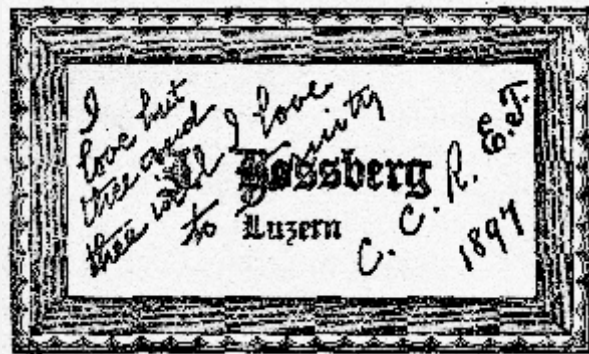 I
love but
thee and
thee will I love
to Eternity
Luzern
C. C. R. E.T.
1897